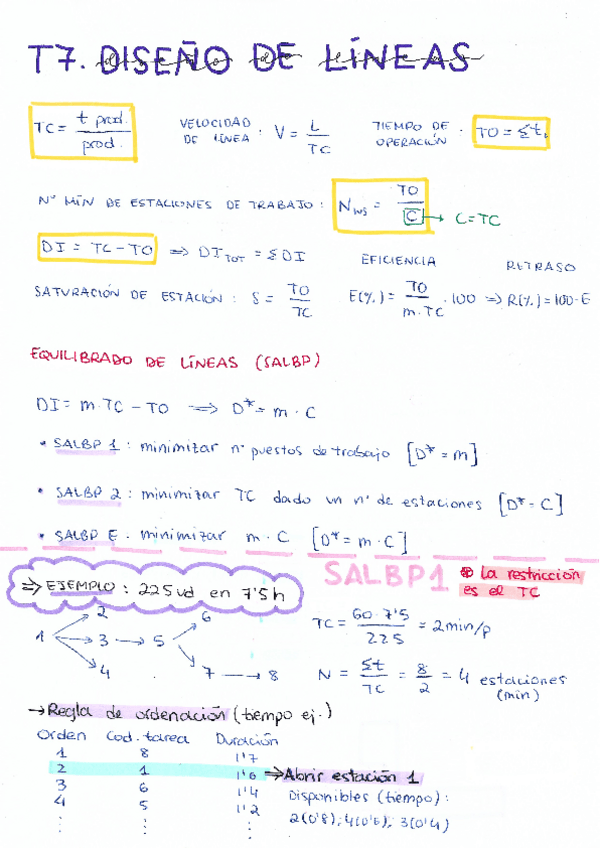 T7. DISEÑO DE LÍNEAS
TC = t prod. / prod.
VELOCIDAD DE LÍNEA : V = L / TC
TIEMPO DE OPERACIÓN : TO = Σti
Nº MÍN DE ESTACIONES DE TRABAJO : Nws = TO / C → C=TC
DI = TC - TO ⇒ DI TOT = ΣDI
EFICIENCIA
RETRASO
SATURACIÓN DE ESTACIÓN : S = TO / TC
E(%) = TO / m·TC · 100 ⇒ R(%) = 100 - E
EQUILIBRADO DE LÍNEAS (SALBP)
DI = m·TC - TO ⇒ D* = m · C
• SALBP 1 : minimizar nº puestos de trabajo [D* = m]
• SALBP 2 : minimizar TC dado un nº de estaciones [D* = C]
• SALBP E . minimizar m · C [D* = m · C]
SALBP1
⊛ La restricción
es el TC
⇒ EJEMPLO : 225 ud en 7'5 h
1 2 3 4 5 6 7 8
TC = 60 · 7'5 / 225 = 2 min/p
N = Σt / TC = 8 / 2 = 4 estaciones
(min)
→ Regla de ordenación (tiempo ej.)
Orden Cod. tarea Duración
1 8 1'7
2 1 1'6 → Abrir estación 1
3 6 1'4
4 5 1'2
Disponibles (tiempo) :
2(0'8), 4(0'6), 3(0'4)